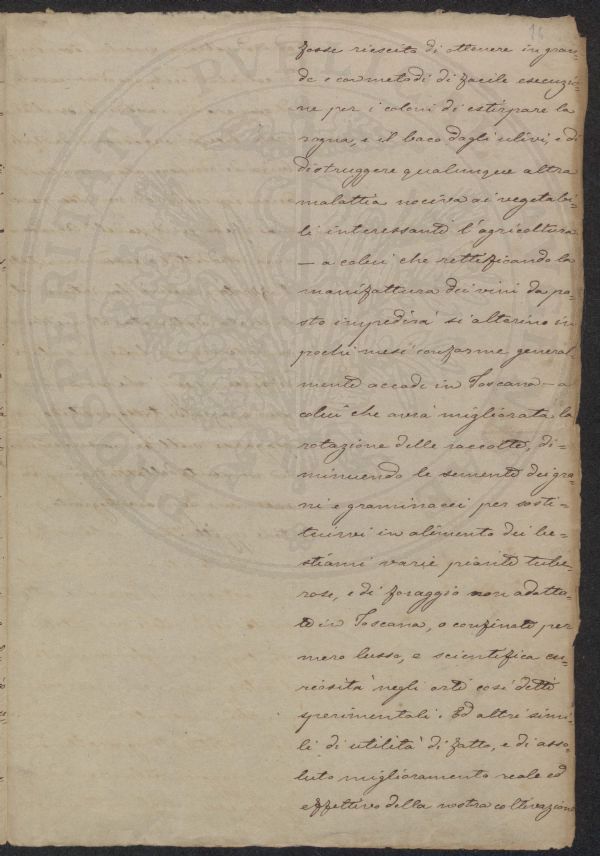 16
fosse riescito di ottenere in gran=
de e con metodi di facile esecuzio=
ne per i coloni di estirpare la
rogna, e il baco dagli ulivi, e di
distruggere qualunque altra
malattia nociva ai vegetabi=
li interessanti l'agricoltura
— a colui che rettificando la
manifattura dei vini da pa=
sto impedirà si alterino in
pochi mesi conforme general=
mente accade in Toscana — a
colui che avrà migliorata la
rotazione delle raccolte, di=
minuendo le semente dei gra=
ni e graminacei per sosti=
tuirvi in alimento dei be=
stiami varie piante tube=
rose, e di foraggio non adotta=
te in Toscana, o confinate per
mero lusso, e scientifica cu=
riosità negli orti così detti
sperimentali. Ed altri simi=
li di utilità di fatto, e di asso=
luto miglioramento reale ed
effettivo della nostra coltivazione